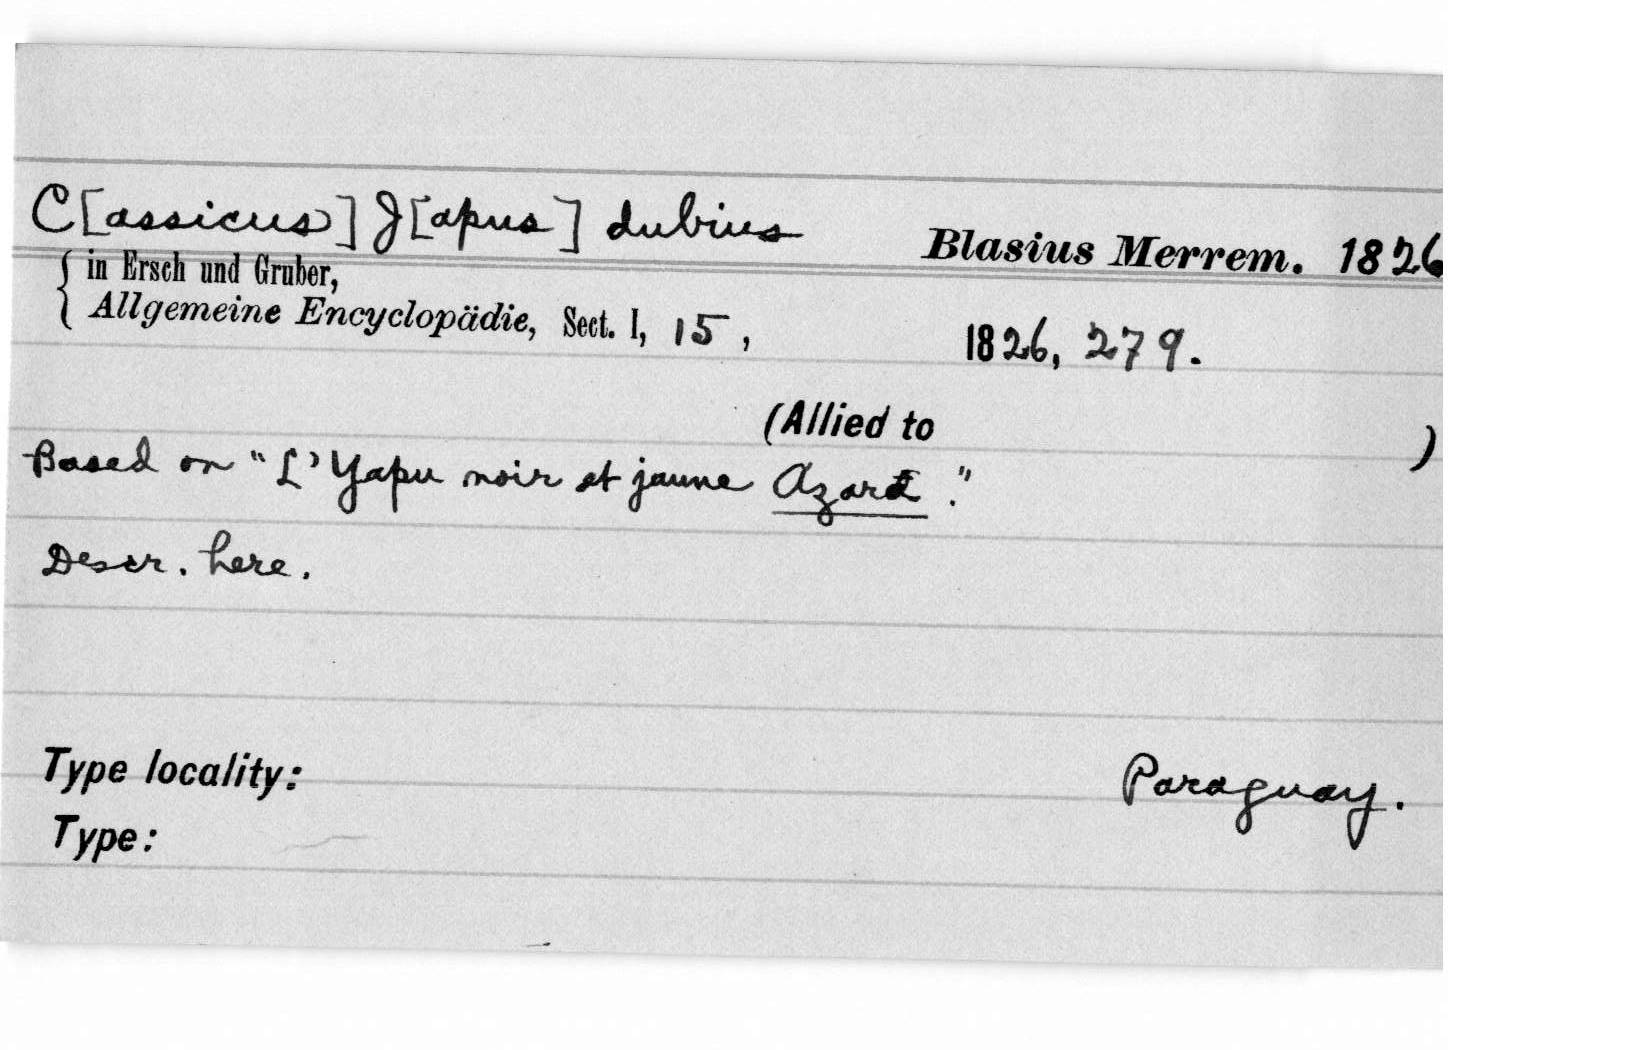 C[assicus] J[apus] dubius Blasius Merrem. 1826
in Ersch und Gruber,
Allgemeine Encyclopädie, Sect. I, 15, 1826, 279.
(Allied to )
Based on "L'Yapu noir et jaune Azara."
Descr. here.
Type locality: Paraguay.
Type: